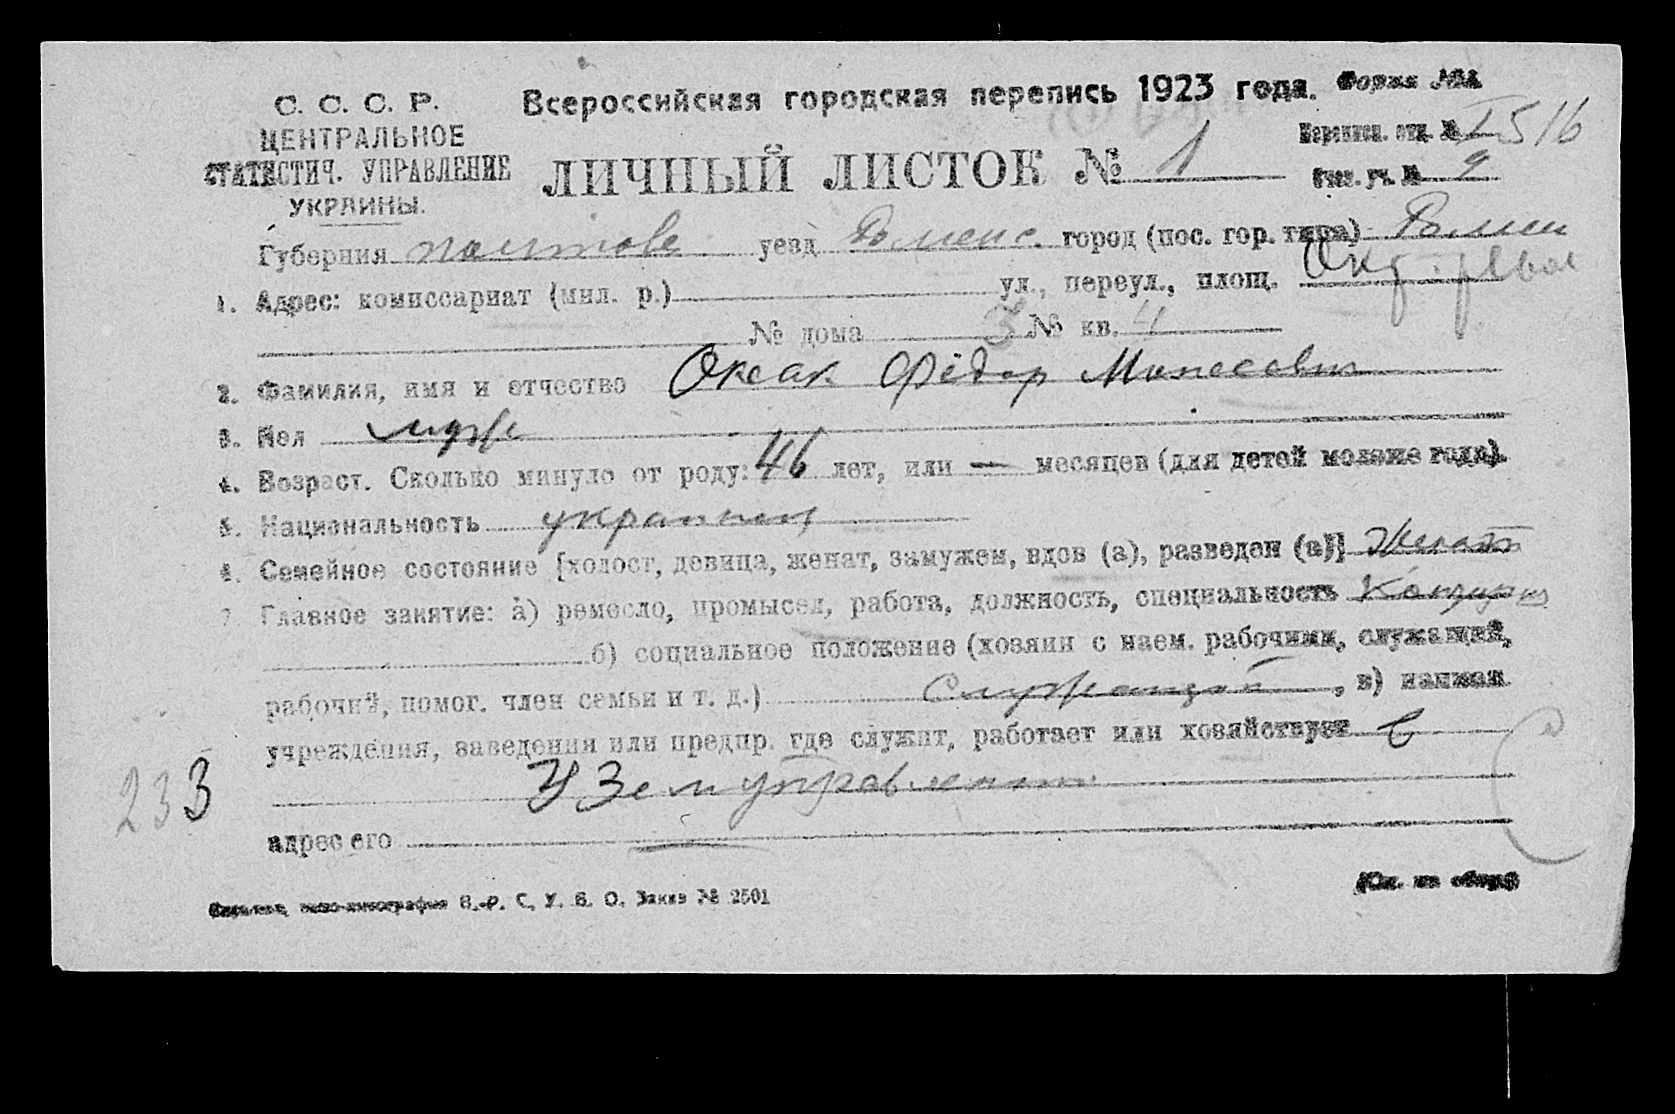 С. С. С. Р.
ЦЕНТРАЛЬНОЕ
СТАТИСТИЧ. УПРАВЛЕНИЕ
УКРАИНЫ.
Всероссийская городская перепись 1923 года.
Форма №
ЛИЧНЫЙ ЛИСТОК № 1
Переписн. отд. № I 516
Счет. уч. № 9
Губерния уезд Роменс. город (пос. гор. типа) Ромен
1. Адрес: комиссариат (мил. р.) ул., переул., площ.
№ дома 3 № кв. 4
2. Фамилия, имя и отчество Оксак Фёдор
3. Пол муж
4. Возраст. Сколько минуло от роду: 46 лет, или — месяцев (для детей моложе года).
5. Национальность украинец
6. Семейное состояние [холост, девица, женат, замужем, вдов (а), разведен (а)] Женат
7. Главное занятие: а) ремесло, промысел, работа, должность, специальность
б) социальное положение (хозяин с наем. рабочими, служащий,
рабочий, помог. член семьи и т. д.) Служащий, в) наимен.
учреждения, заведения или предпр. где служит, работает или хозяйствует в
УЗемуправлении
адрес его —
233
В.-Р. С. У. В. О. Заказ № 2501
(См. на обор.)